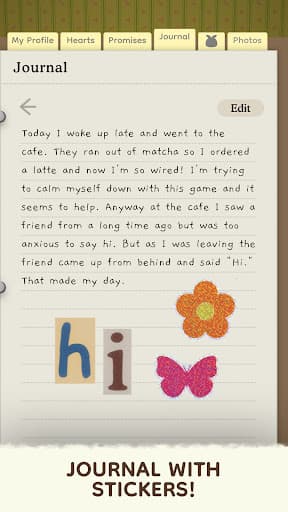 My Profile Hearts Promises Journal Photos
Journal
Edit
Today I woke up late and went to the
cafe. They ran out of matcha so I ordered
a latte and now I'm so wired! I'm trying
to calm myself down with this game and it
seems to help. Anyway at the cafe I saw a
friend from a long time ago but was too
anxious to say hi. But as I was leaving the
friend came up from behind and said "Hi."
That made my day.
hi
JOURNAL WITH
STICKERS!